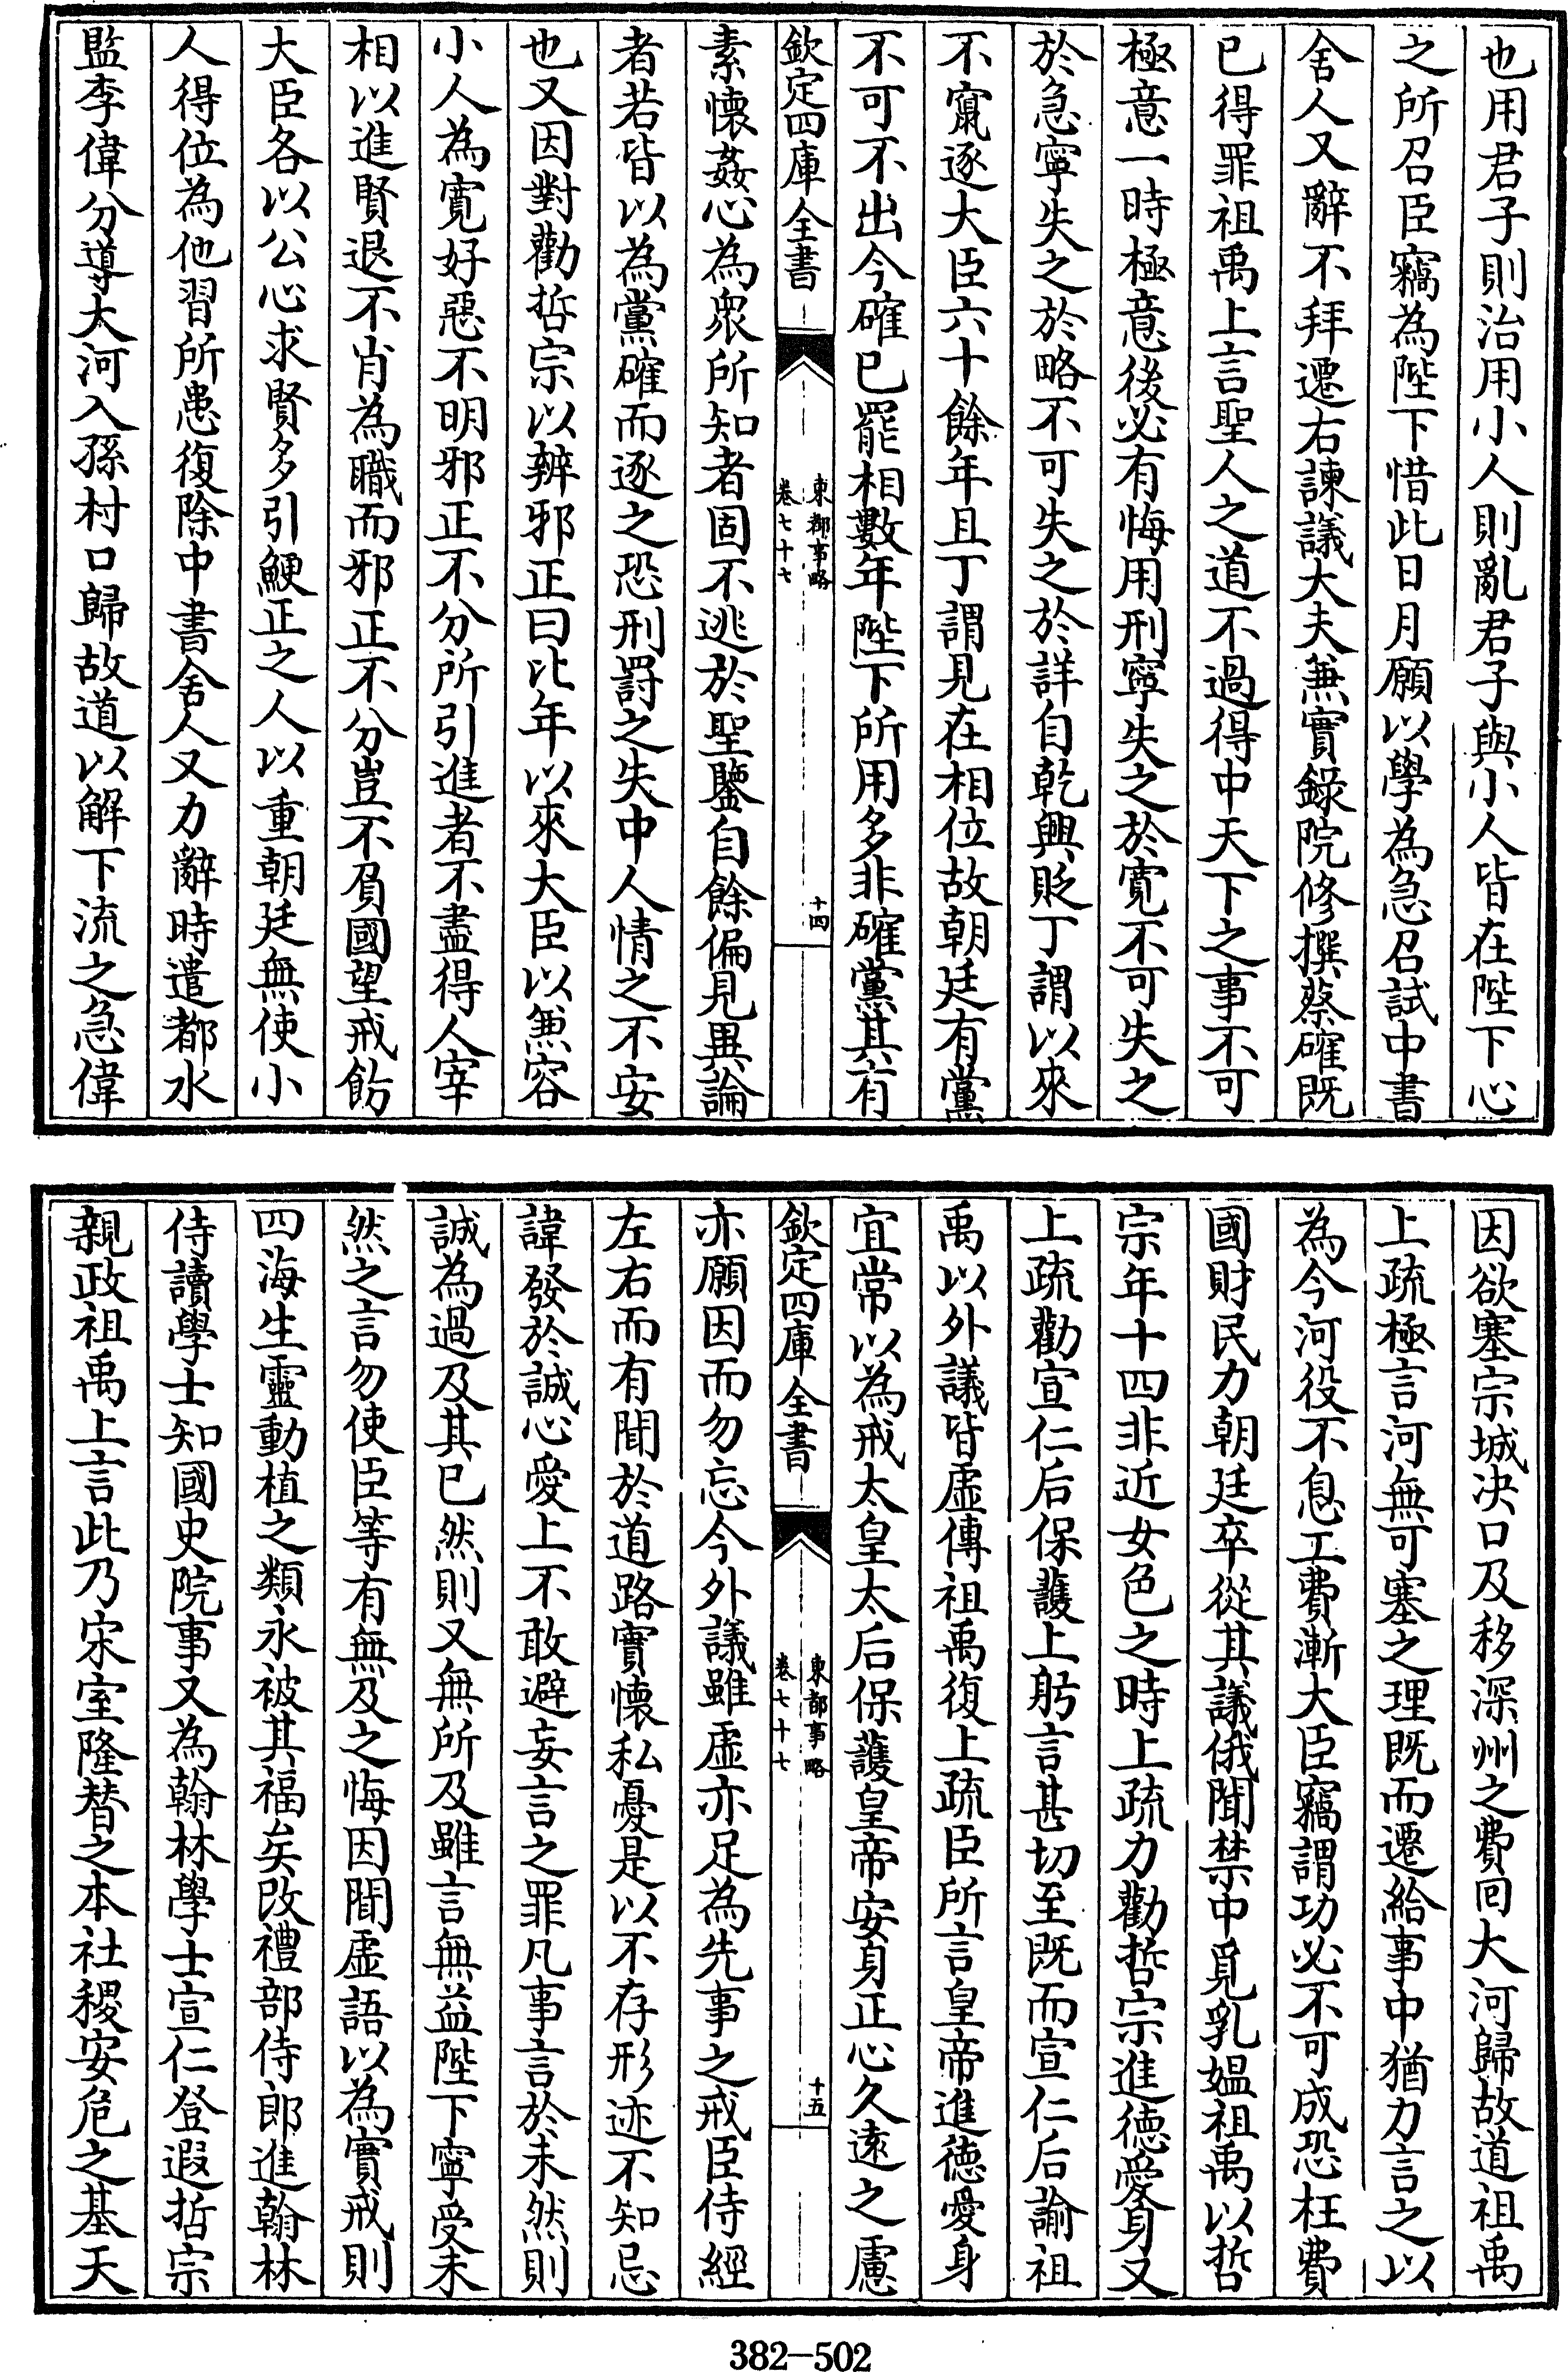 也用君子則治用小人則亂君子與小人皆在陛下心
之所召臣竊為陛下惜此日月願以學為急召試中書
舍人又辭不拜遷右諫議大夫兼實錄院修撰蔡確既
已得罪祖禹上言聖人之道不過得中天下之事不可
極意一時極意後必有悔用刑寧失之於寛不可失之
於急寧失之於略不可失之於詳自乾興貶丁謂以來
不竄逐大臣六十餘年且丁謂見在相位故朝廷有黨
不可不出今確已罷相數年陛下所用多非確黨其有
欽定四庫全書
東都事略
卷七十七
十四
素懷姦心為衆所知者固不逃於聖鑒自餘偏見異論
者若皆以為黨確而逐之恐刑罰之失中人情之不安
也又因對勸哲宗以辨邪正曰比年以來大臣以兼容
小人為寛好惡不明邪正不分所引進者不盡得人宰
相以進賢退不肖為職而邪正不分豈不負國望戒飭
大臣各以公心求賢多引鯁正之人以重朝廷無使小
人得位為他習所患復除中書舍人又力辭時遣都水
監李偉分導大河入孫村口歸故道以解下流之急偉
因欲塞宗城決口及移深州之費回大河歸故道祖禹
上疏極言河無可塞之理既而遷給事中猶力言之以
為今河役不息工費漸大臣竊謂功必不可成恐枉費
國財民力朝廷卒從其議俄聞禁中覓乳媪祖禹以哲
宗年十四非近女色之時上疏力勸哲宗進德愛身又
上疏勸宣仁后保護上躬言甚切至既而宣仁后諭祖
禹以外議皆虚傳祖禹復上疏臣所言皇帝進徳愛身
宜常以為戒太皇太后保護皇帝安身正心久遠之慮
欽定四庫全書
東都事略
卷七十七
十五
亦願因而勿忘今外議雖虚亦足為先事之戒臣侍經
左右而有聞於道路實懷私憂是以不存形迹不知忌
諱發於誠心愛上不敢避妄言之罪凡事言於未然則
誠為過及其已然則又無所及雖言無益陛下寧受未
然之言勿使臣等有無及之悔因聞虚語以為實戒則
四海生靈動植之類永被其福矣改禮部侍郎進翰林
侍讀學士知國史院事又為翰林學士宣仁登遐哲宗
親政祖禹上言此乃宋室隆替之本社稷安危之基天
382—502